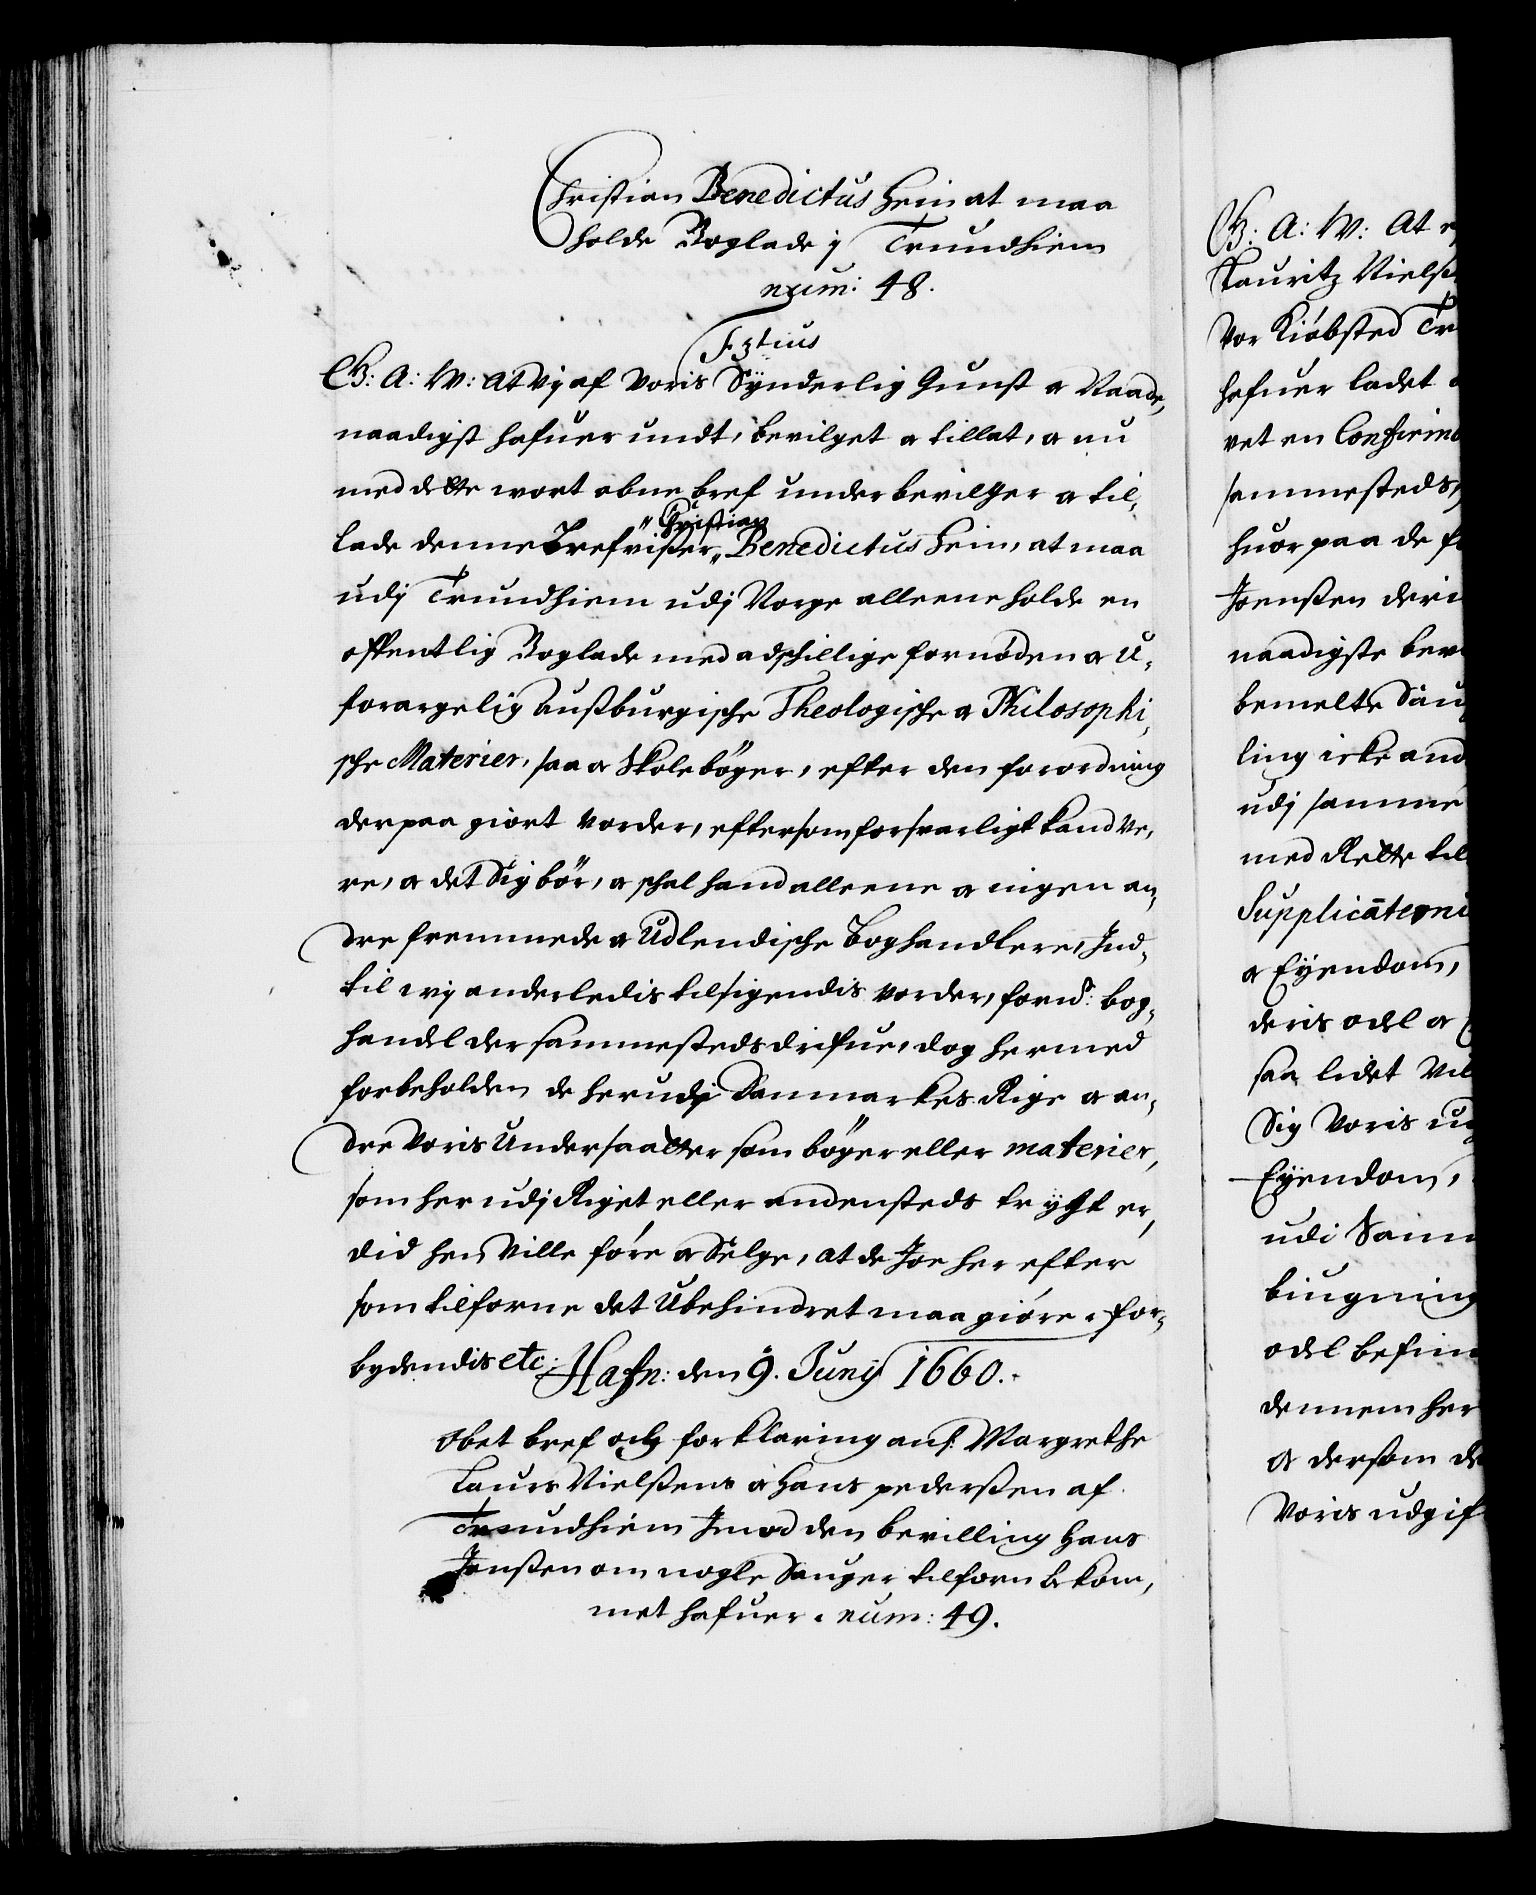 Christian Benedictus Hein at maa
holde Boglade j Trundhiem
num: 48.
F 3tius
G: A: W: At Vj af Voris Synderlig Gunst & Naade,
naadigst hafuer undt, bevilget & tillat, & nu
med dette wort obne bref under bevilger & til,
lade denne Brefviszer, Christian Benedictus Hein, at maa
udj Trundhiem udj Norge alleene holde en
offentlig Boglade med adschillige fornøden & U,
forargelig Ausburgische Theologische & Philosophi,
sche Materier, saa & Skolebøger, efter den forordning
derpaa giort vorder, eftersom forsvarligt kand ve,
re, & det Sig bør, & schal hand alleene & ingen an,
dre fremmede & Udlendische Boghandlere, Ind,
til wj anderledis tilsigendis vorder, fornd: bog,
handel dersammesteds drifue, dog hermed
forbeholden de herudj Danmarkes Rige & an,
dre Voris Undersaatter som bøger eller materier,
som her udj Riget eller andensteds trygt er,
did hen Ville føre & Selge, at de Joe her efter
som tilforne det Ubehindret maa giøre. For,
bydendis etc: Hafn: den 9. Junij 1660.
Obet bref och forklaring anl. Margrethe
Laurs Nielszens & Hans pederszen af
Trundhiem Imod den bevilling Hans
Jenszen om nogle Sauger tilforn bekom,
met hafuer. num: 49.
G: A: W: At e
Lauritz Nielsz
Vor Kiøbsted Tr
hafuer ladet
vet en Confirma
sammesteds,
huor paa de f
Joenszen der
naadigste bev
bemelte Sau
ling icke and
udj samme
med Rette til
Supplicaterne
& Eyendom,
deris odel &
saa lidet Vil
Sig Voris u
Eyendom,
udi Sam
biugning
odel befin
dennem her
& dersom de
Voris udgif